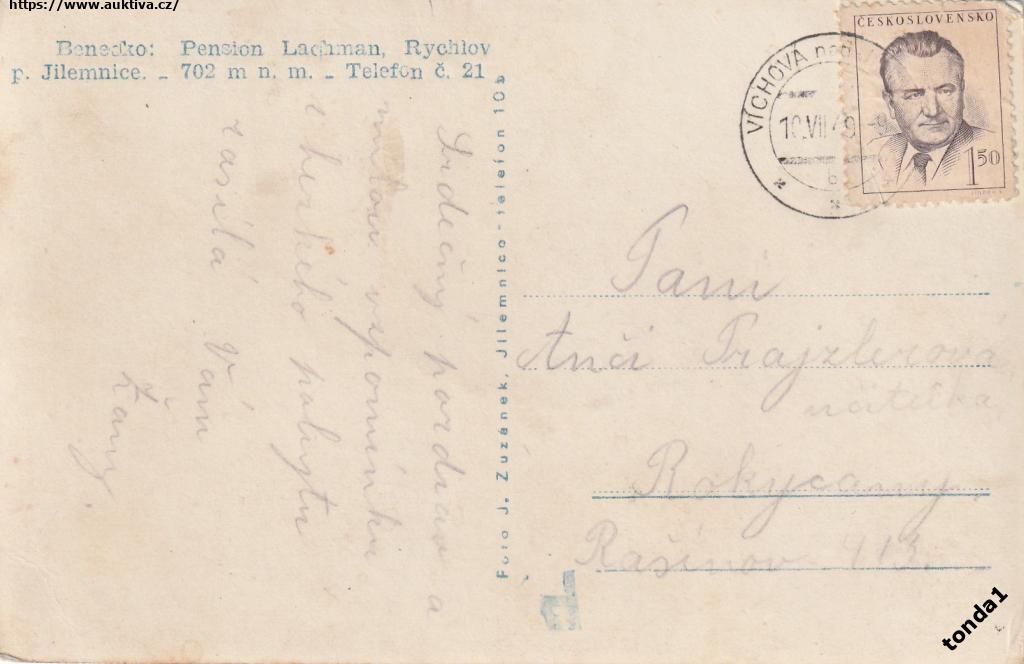 https://www.auktiva.cz/
Benecko: Pension Lachman, Rychlov
p. Jilemnice. - 702 m n. m. - Telefon č. 21
Srdečný pozdrav a
milou vzpomínku
z horského pobytu
zasílá Vám
Foto J. Zuzánek, Jilemnice-telefon 10b
VÍCHOVÁ nad
10.VII.49.-9
b
ČESKOSLOVENSKO
1 50
Paní
Anči Trajzlerová
učitelka
Rokycany
Rašínov 413.
tonda1